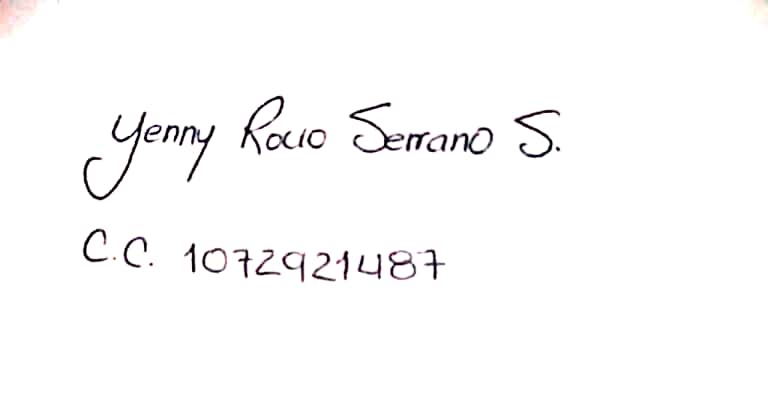 Yenny Rocio Serrano S.
C.C. 1072921487